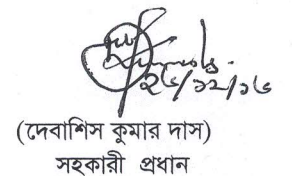 ২৬/১২/১৬
(দেবাশিস কুমার দাস)
সহকারী প্রধান